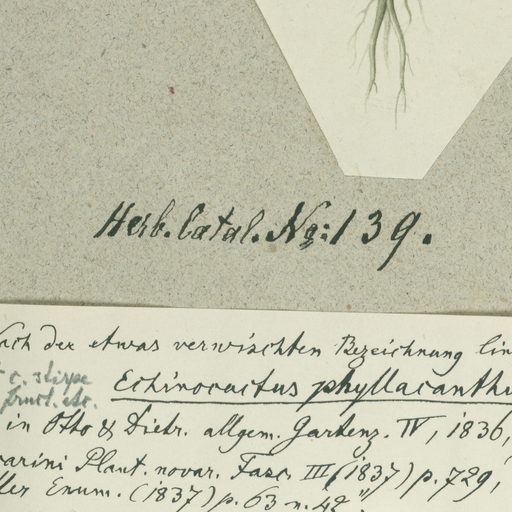 Herb. Catal. No: 139.
Nach der etwas verwischten Bezeichnung lin
c. stirpe
fruct. etc.
Echinocactus phyllacanthu
in Otto & Dietr. allgem. Gartenz. IV, 1836,
carini Plant. novar. Fasc. III (1837) p. 729,
ller Enum. (1837) p. 63 n. 42"